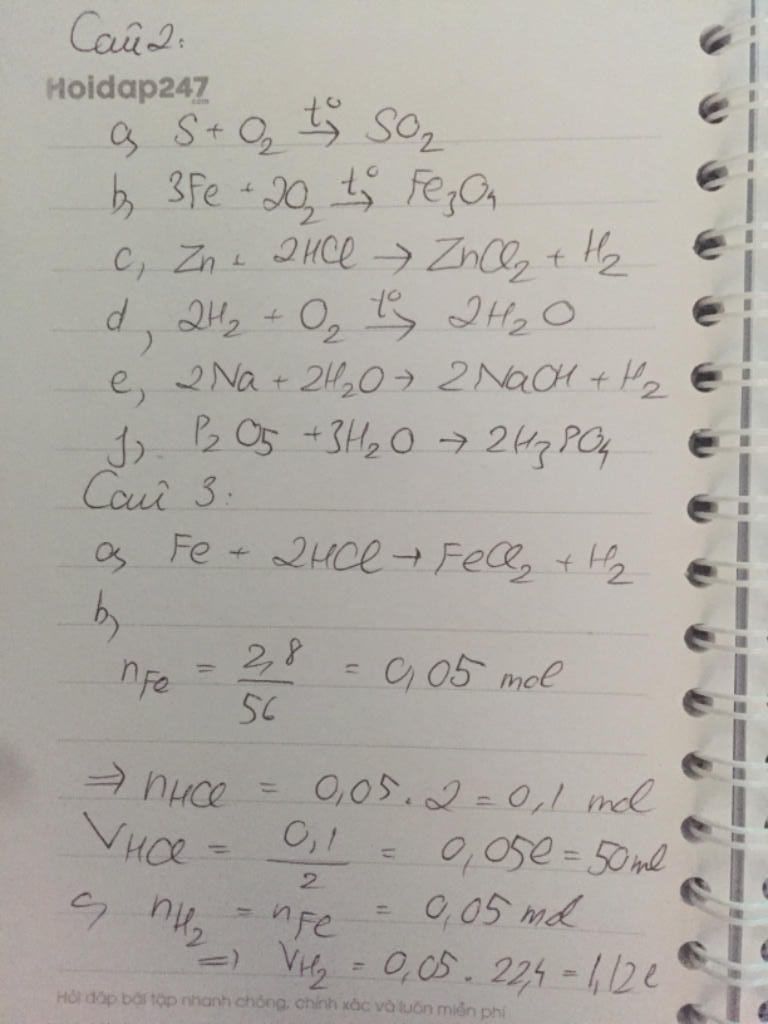 Câu 2:
Hoidap247
.com
a, S + O₂ t°→ SO₂
b, 3Fe + 2O₂ t°→ Fe₃O₄
c, Zn + 2HCl → ZnCl₂ + H₂
d, 2H₂ + O₂ t°→ 2H₂O
e, 2Na + 2H₂O → 2NaOH + H₂
f, P₂O₅ + 3H₂O → 2H₃PO₄
Câu 3:
a, Fe + 2HCl → FeCl₂ + H₂
b,
nFe = 2,8/56 = 0,05 mol
⇒ nHCl = 0,05 . 2 = 0,1 mol
VHCl = 0,1/2 = 0,05l = 50ml
c, nH₂ = nFe = 0,05 mol
⇒ VH₂ = 0,05 . 22,4 = 1,12l
Hỏi đáp bài tập nhanh chóng, chính xác và luôn miễn phí